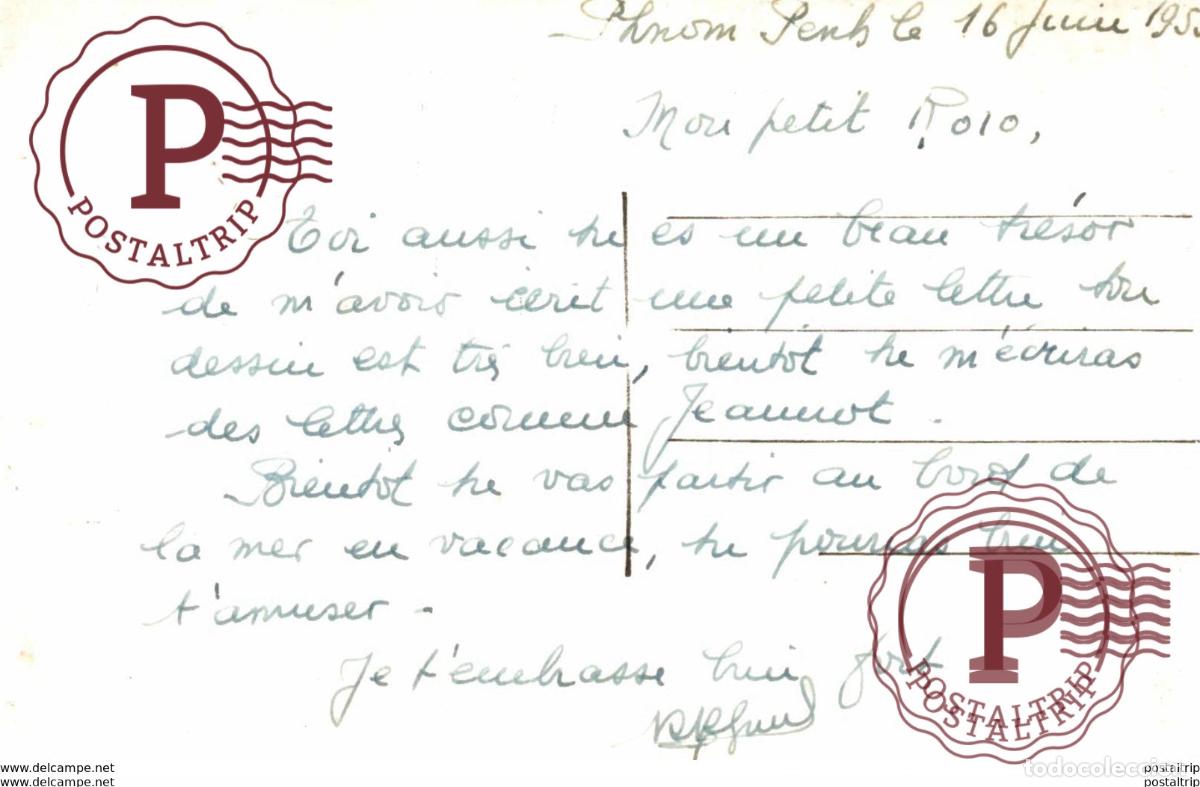 Phnom Penh le 16 Juin 195
Mon petit Roro,
Toi aussi tu es un beau trésor
de m'avoir écrit une petite lettre ton
dessin est très bien, bientôt tu m'écriras
des lettres comme Jeannot.
Bientôt tu vas partir au bord de
la mer en vacances, tu pourras bien
t'amuser.
Je t'embrasse bien fort
P
POSTALTRIP
P
POSTALTRIP
POSTALTRIP
www.delcampe.net
www.delcampe.net
postaltrip
postaltrip
todocoleccion